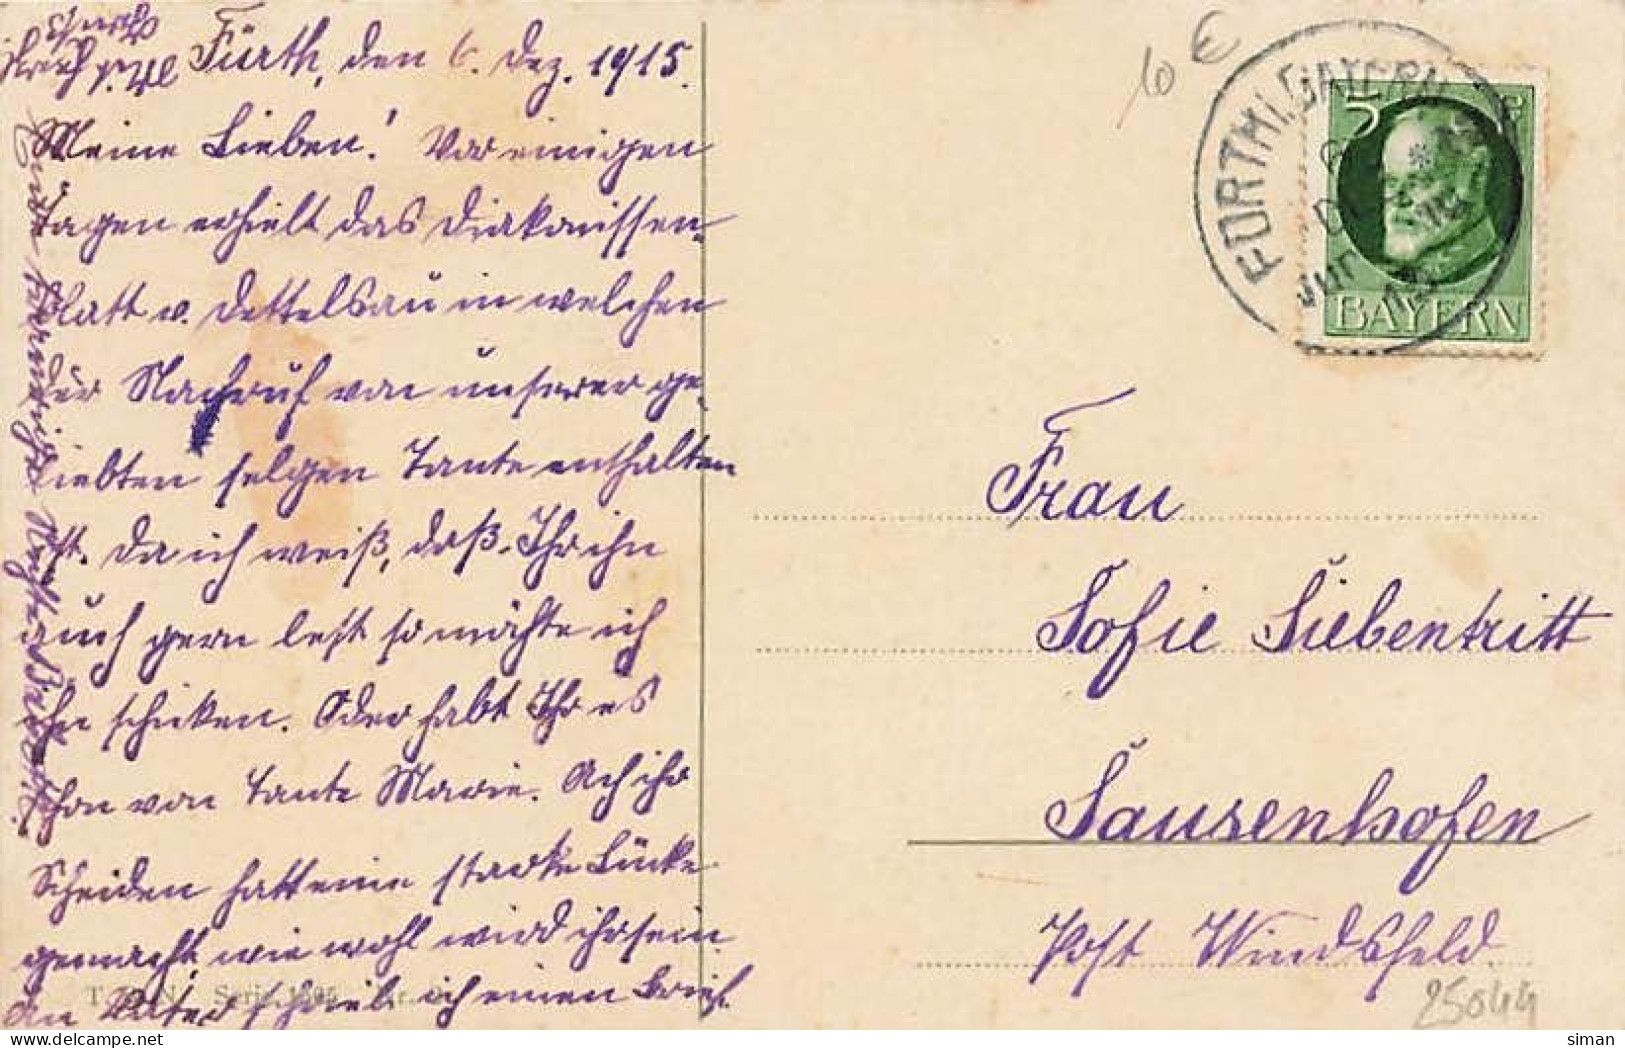 Fürth, den 6. Dez. 1915.
Meine Lieben! Vor einigen
Tagen erhielt das Diakonissen-
blatt v. Dettelsau in welchen
der Nachruf von unserer ge-
liebten selgen Tante enthalten
ist. Da ich weiß, daß Ihr ihn
auch gern lest so möchte ich
ihn schicken. Oder habt Ihr es
schon von Tante Marie. Ach ihr
Scheiden hat eine starke Lücke
gemacht wie wohl wird ihr sein
An Vater schrieb ich einen Brief.
10 €
FÜRTH I. BAYERN
5
BAYERN
Frau
Sofie Siebentritt
Sausenhofen
Post Windsfeld
25044
T. Serie
siman